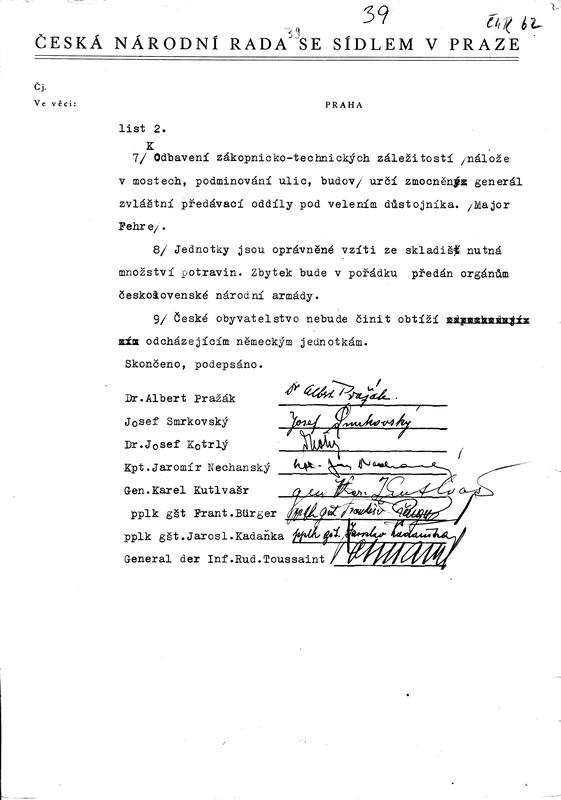 39
ČNR 62
39
ČESKÁ NÁRODNÍ RADA SE SÍDLEM V PRAZE
Čj.
Ve věci:
PRAHA
list 2.
K
7/ Odbavení zákopnicko-technických záležitostí /nálože
v mostech, podminování ulic, budov/ určí zmocněný generál
zvláštní předávací oddíly pod velením důstojníka. /Major
Fehre/.
8/ Jednotky jsou oprávněné vzíti ze skladišť nutná
množství potravin. Zbytek bude v pořádku předán orgánům
československé národní armády.
9/ České obyvatelstvo nebude činit obtíží
odcházejícím německým jednotkám.
Skončeno, podepsáno.
Dr.Albert Pražák Dr Albert Pražák.
Josef Smrkovský Josef Smrkovský
Dr.Josef Kotrlý
Kpt.Jaromír Nechanský kpt. Jar. Nechanský
Gen.Karel Kutlvašr gen Kar. Kutlvašr
pplk gšt Frant.Bürger pplk gšt František Bürger
pplk gšt.Jarosl.Kadaňka pplk gšt. Jaroslav Kadaňka
General der Inf.Rud.Toussaint